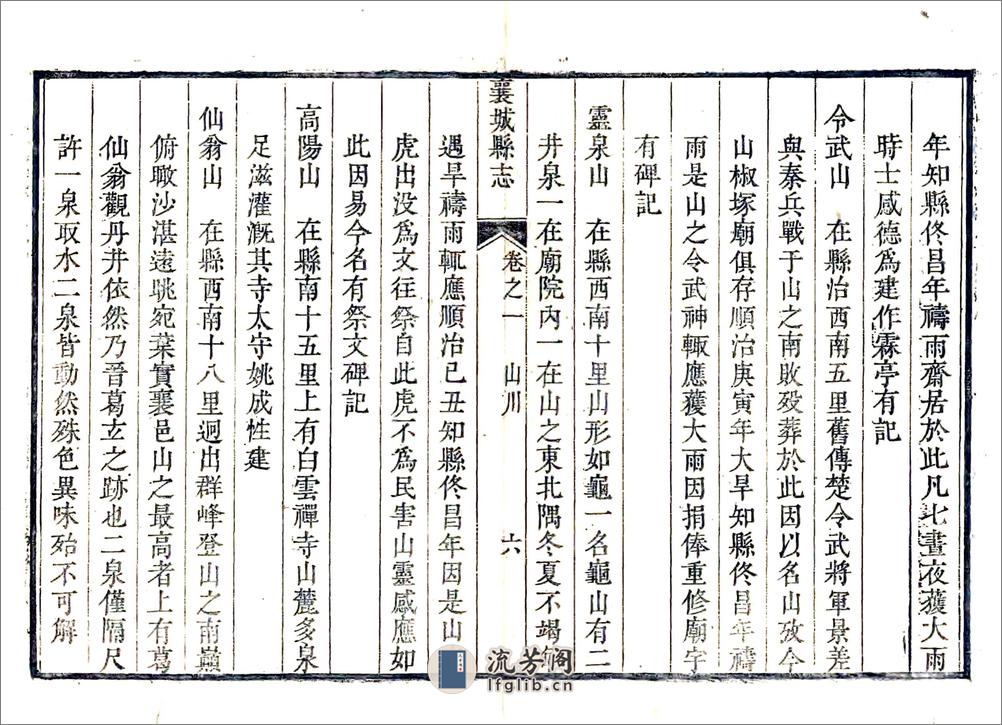 年知縣佟昌年禱雨齋居於此凡七晝夜獲大雨
時士感德爲建作霖亭有記
令武山　在縣治西南五里舊傳楚令武將軍景差
與秦兵戰于山之南敗殁葬於此因以名山攷今
山椒塚廟俱存順治庚寅年大旱知縣佟昌年禱
雨是山之令武神輙應獲大雨因捐俸重修廟宇
有碑記
靈泉山　在縣西南十里山形如龜一名龜山有二
井泉一在廟院內一在山之東北隅冬夏不竭
襄城縣志　卷之一　山川　六
遇旱禱雨輒應順治己丑知縣佟昌年因是山
虎出没爲文往祭自此虎不爲民害山靈感應如
此因易今名有祭文碑記
高陽山　在縣南十五里上有白雲禪寺山麓多泉
足滋灌溉其寺太守姚成性建
仙翁山　在縣西南十八里迥出群峰登山之南巔
俯瞰沙湛遠眺宛葉實襄邑山之最高者上有葛
仙翁觀丹井依然乃晉葛玄之跡也二泉僅隔尺
許一泉取水二泉皆動然殊色異味殆不可解
流芳閣
lfglib.cn